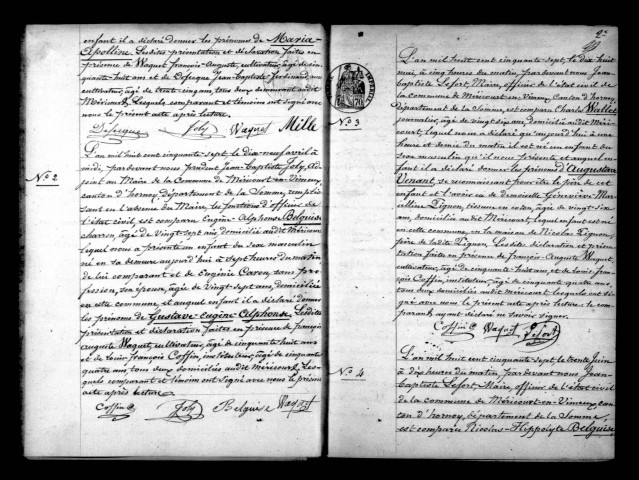 enfant il a déclaré donner les prénoms de Maria
Apolline. Lesdites présentation et déclaration faites en
présence de Waquet françois-Auguste, cultivateur, âgé de cin-
quante-huit ans et de Cofseque Jean-baptiste Ferdinand, aus
cultivateur, âgé de trente cinq ans, tous deux demeurant audit
Méricourt, Lesquels, comparant et témoins ont signé avec
nous le présent acte après lecture.
Joly Waquet Mille
N.º 2
L'an mil huit cent cinquante-sept le dix-neuf avril à
midi, par devant nous président Jean-baptiste Joly, Ad-
joint au Maire de la Commune de Méricourt-en-Vimeu,
canton d'hornoy, département de la Somme, remplis-
sant en l'absence du Maire, les fonctions d'officier de
l'état civil, est comparu Eugène Alphonse Belguise
charron, âgé de vingt sept ans, domicilié audit Méricourt
lequel nous a présenté un enfant du sexe masculin
né en sa demeure aujourd'hui à sept heures du matin
de lui comparant et de Eugénie Caron, sans pro-
fession, son épouse, âgée de vingt-sept ans, domiciliée
en cette commune, et auquel enfant il a déclaré donner
les prénoms de Gustave Eugène Alphonse. Lesdites
présentation et déclaration faites en présence de françois
auguste Waquet, cultivateur, âgé de cinquante huit ans
et de Louis françois Coffin, instituteur, âgé de cinquante
quatre ans, tous deux domiciliés audit Méricourt. Les-
quels comparant et témoins ont signé avec nous le présent
acte après lecture.
Coffin Joly Belguise Waquet
2e
N.º 3
L'an mil huit cent cinquante-sept, le dix huit
mai, à cinq heures du matin, par devant nous Jean-
baptiste Lefort, Maire, officier de l'état civil de
la commune de Méricourt-en-Vimeu, Canton d'hornoy,
Département de la Somme, est comparu Charles Wallet
journalier, âgé de vingt six ans, domicilié audit Méri-
court, lequel nous a déclaré qu'aujourd'hui à une
heure et demie du matin il est né un enfant du
sexe masculin qu'il nous présente et auquel en-
fant il a déclaré donner les prénoms d'Augustave
Venant, se reconnaissant pour être le père de cet
enfant et l'avoir eu de demoiselle Geneviève Mar-
celline Lignon, tisseuse en coton, âgée de vingt six
ans, domiciliée audit Méricourt, lequel enfant est né
en cette commune, en la maison de Nicolas Lignon,
père de ladite Lignon. Lesdites déclaration et présen-
tation faites en présence de françois-Auguste Waquet,
cultivateur, âgé de cinquante-huit ans, et de Louis françois
Coffin, instituteur, âgé de cinquante quatre ans,
tous deux domiciliés audit Méricourt, lesquels ont si-
gné avec nous le présent acte après lecture. le com-
parant ayant déclaré ne savoir signer.
Coffin Waquet Lefort
N.º 4
L'an mil huit cent cinquante sept, le trente Juin
à dix heures du matin, par devant nous Jean-
baptiste Lefort, Maire, officier de l'état civil
de la commune de Méricourt-en-Vimeu, can-
ton d'hornoy, département de la Somme,
est comparu Nicolas-Hippolyte Belguise,